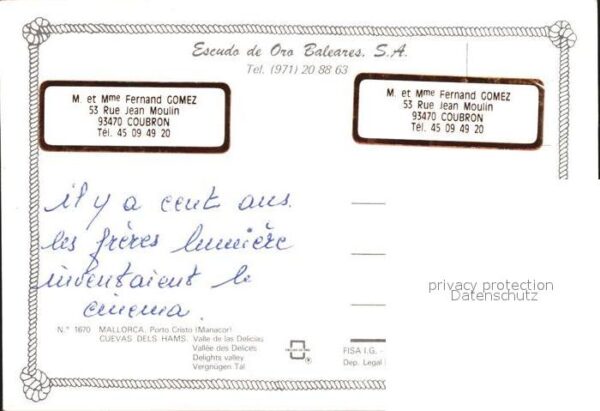 Escudo de Oro Baleares, S.A.
Tel. (971) 20 88 63
M. et Mme Fernand GOMEZ
53 Rue Jean Moulin
93470 COUBRON
Tél. 45 09 49 20
M. et Mme Fernand GOMEZ
53 Rue Jean Moulin
93470 COUBRON
Tél. 45 09 49 20
il y a cent ans
les frères lumière
inventaient le
cinema.
privacy protection
Datenschutz
N.º 1670 MALLORCA. Porto Cristo (Manacor)
CUEVAS DELS HAMS. Valle de las Delicias
Vallée des Délices
Delights valley
Vergnügen Tal
FISA I.G. -
Dep. Legal